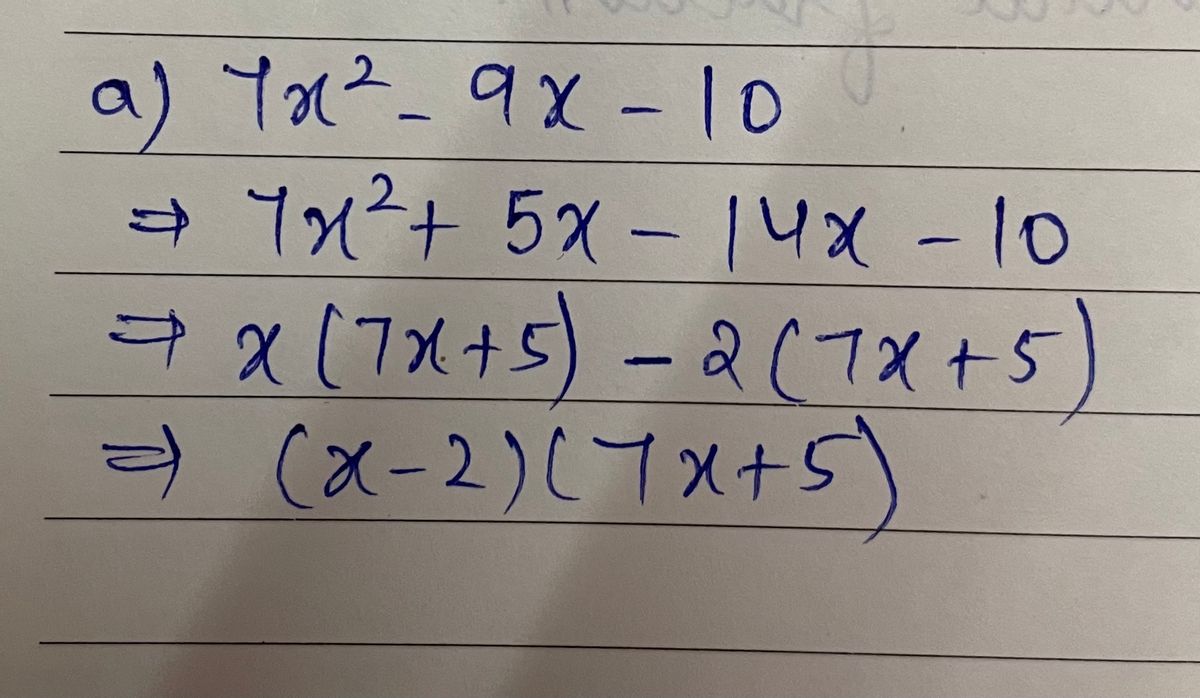 a) 7x² - 9x - 10
⇒ 7x² + 5x - 14x - 10
⇒ x(7x+5) - 2(7x+5)
⇒ (x-2)(7x+5)